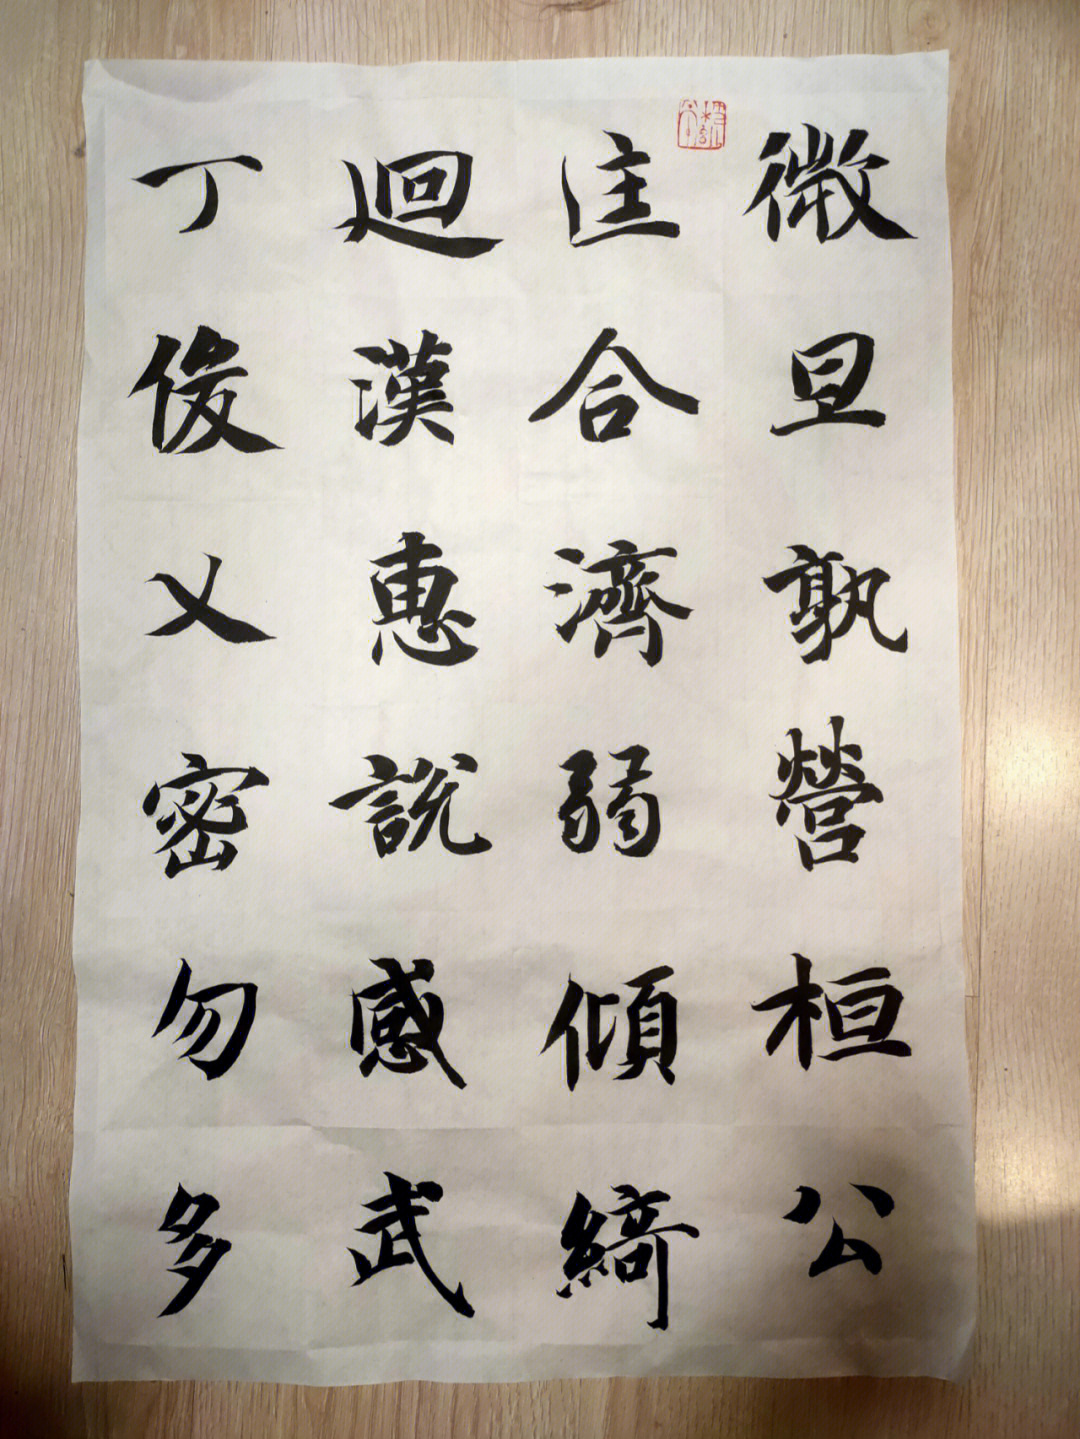 微旦孰營桓公
匡合濟弱傾綺
迴漢惠說感武
丁俊乂密勿多